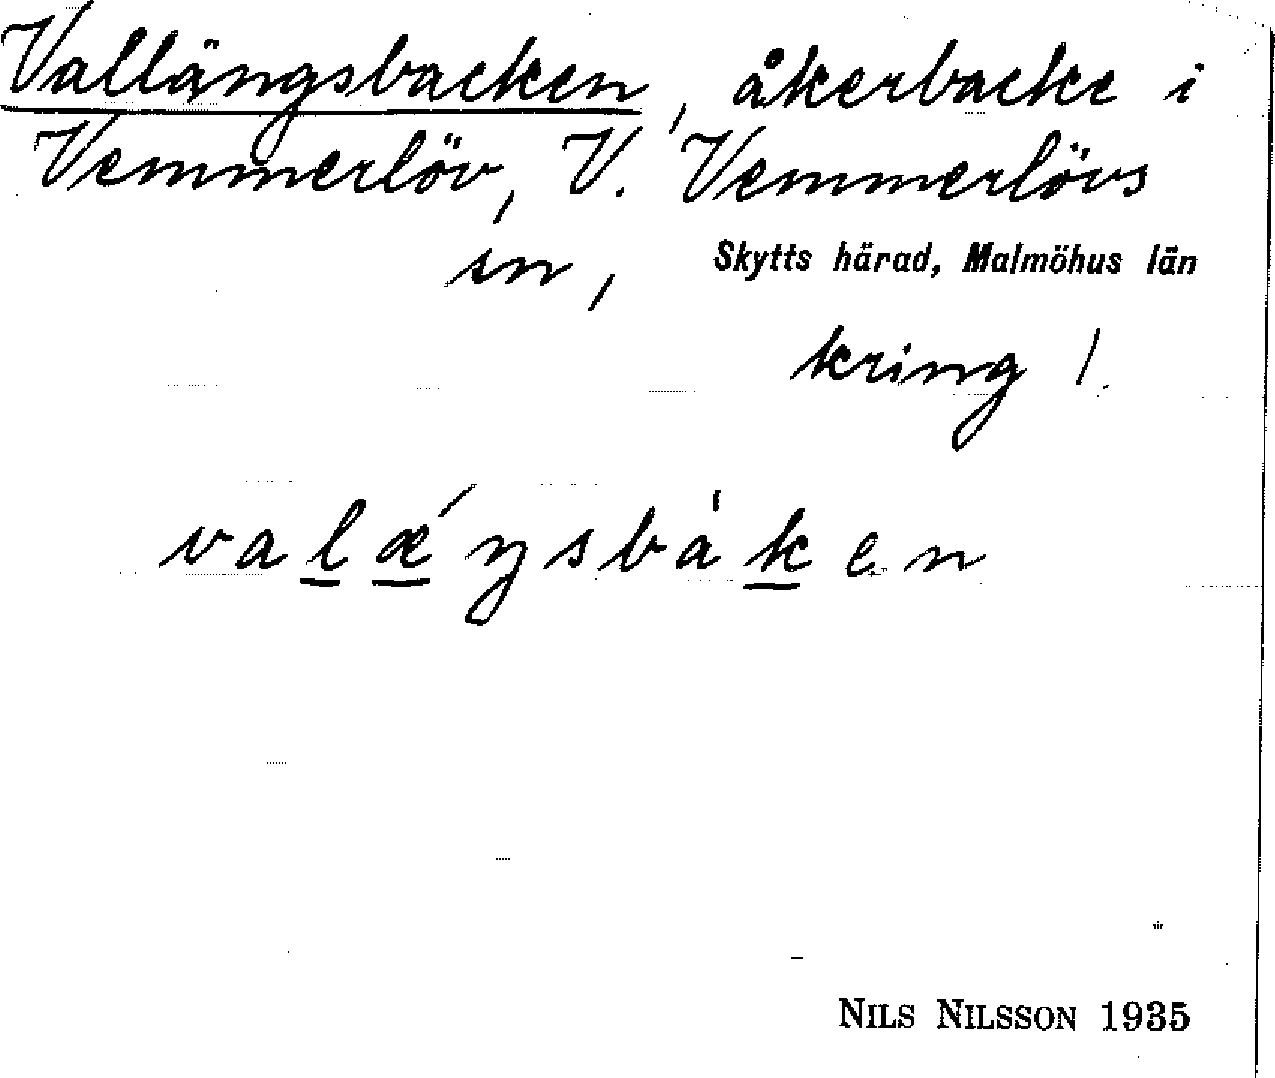 Vallängsbacken, åkerbacke i
Vemmerlöv, V. Vemmerlövs
sn, Skytts härad, Malmöhus län
kring /.
valǽŋsbàken
NILS NILSSON 1935